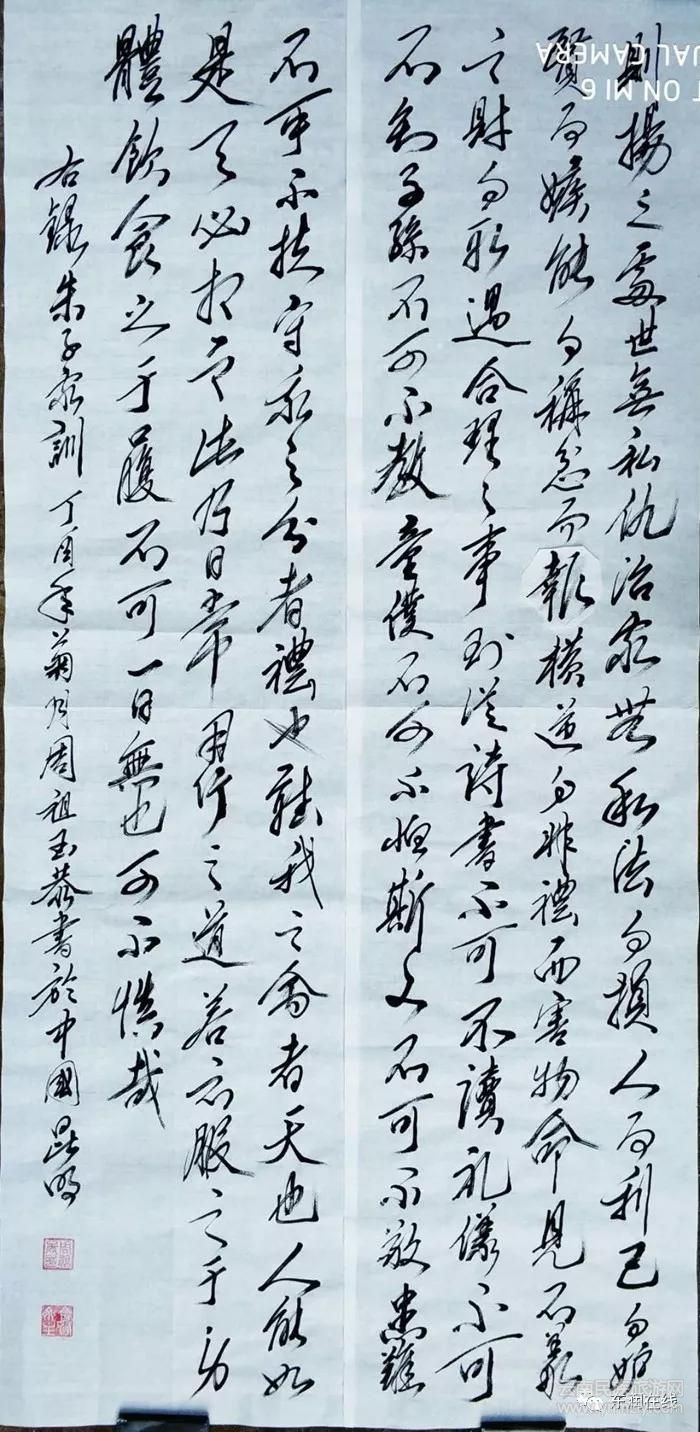 則揚之處世無私仇治家無私法勿損人而利己勿妒
賢而嫉能勿稱忿而報橫逆勿非禮而害物命見不義
之財勿取遇合理之事則從詩書不可不讀礼儀不可
不知子孫不可不教童僕不可不恤斯文不可不敬患難
不可不扶守我之分者禮也聽我之命者天也人能如
是天必相之此乃日常用行之道若衣服之于身
體飲食之于腹不可一日無也可不慎哉
右録朱子家訓丁酉年菊月周祖玉恭書於中國昆明
云南民族旅游网
东润在线